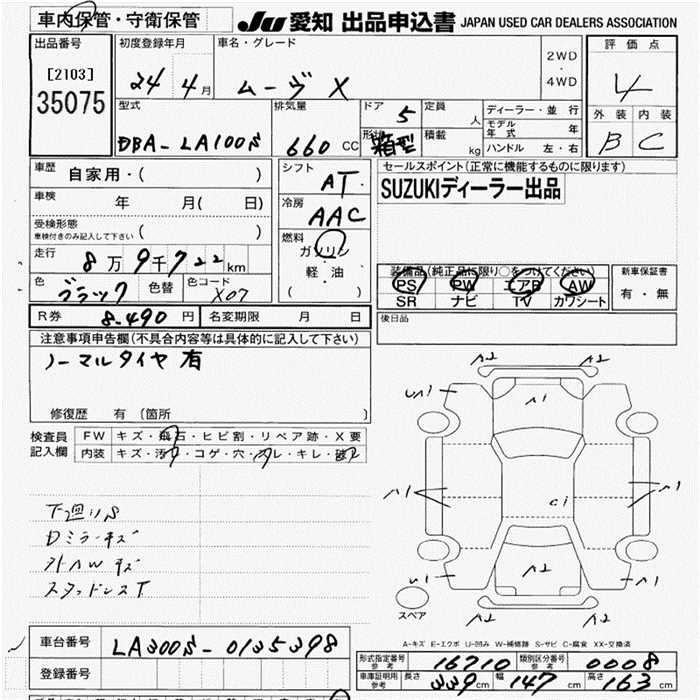 車内保管・守衛保管
JU 愛知 出品申込書 JAPAN USED CAR DEALERS ASSOCIATION
出品番号
[2103]
35075
初度登録年月
24 4月
車名・グレード
ムーヴ X
2WD
・
4WD
評価点
4
外装 内装
B C
型式
DBA-LA100S
排気量
660 CC
ドア 5
形状 箱型
定員 人
積載 kg
ディーラー・並行
モデル年式 年
ハンドル 左・右
車歴 自家用・( )
車検 年 月( 日)
受検形態
車検付きのみ記入して下さい ・( )
走行 8万9千722km
色 ブラック 色替 色コード X07
シフト
AT
冷房
AAC
燃料
ガソリン
軽・油
( )
セールスポイント(正常に機能するものに限ります)
SUZUKIディーラー出品
装備品(純正品に限り○をつけてください)
PS PW エアB AW
SR ナビ TV カワシート
新車保証書
有・無
R券 8,490円 名変期限 月 日
後日品
注意事項申告欄(不具合内容等は具体的に記入して下さい)
ノーマルタイヤ有
修復歴 有(箇所 )
検査員
記入欄
FW キズ・飛石・ヒビ割・リペア跡・X要
内装 キズ・汚・コゲ・穴・スレ・キレ・破
下廻りS
Dミラーキズ
外AWキズ
スタッドレスT
A2 A2
UA1
A1
A1 A1
C1
U1 A2 A1
A2 A2
スペア
A-キズ E-エクボ U-凹み W-補修跡 S-サビ C-腐食 XX-交換済
車台番号 LA300S-0135398
登録番号
形式指定番号 参考 16710 類別区分番号 参考 0008
車庫証明用 参考 長さ 339cm 幅 147cm 高さ 163cm